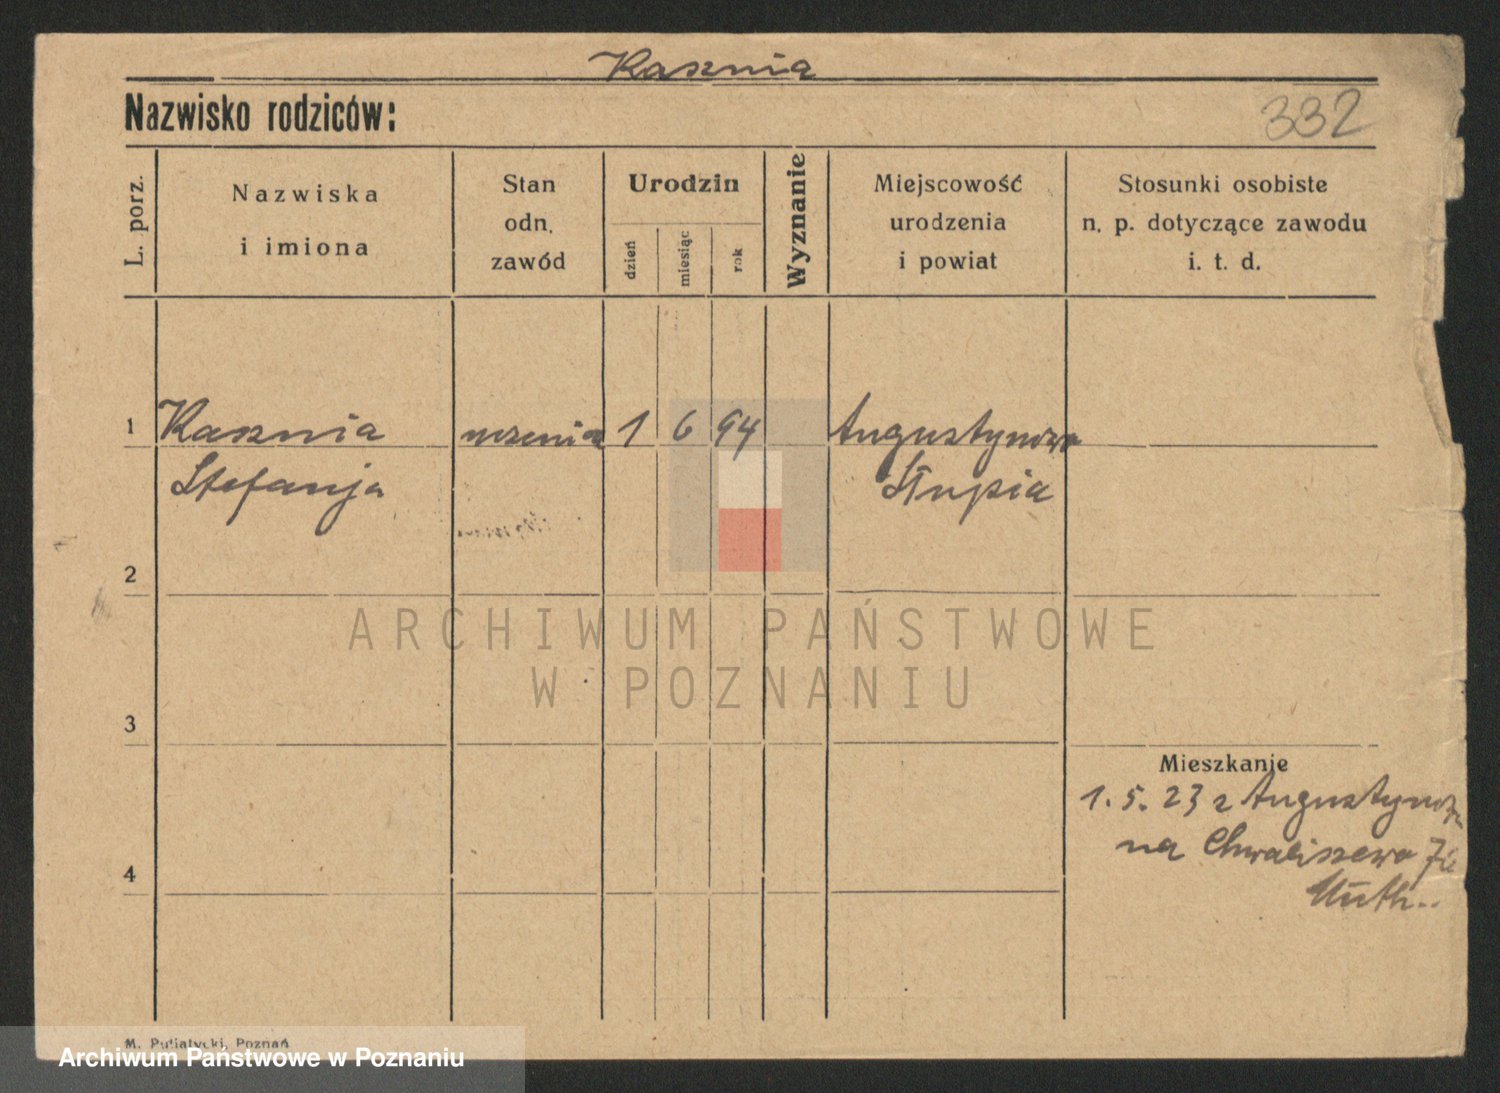 Kasznia
Nazwisko rodziców:
332
L. porz.
Nazwiska
i imiona
Stan
odn.
zawód
Urodzin
dzień
miesiąc
rok
Wyznanie
Miejscowość
urodzenia
i powiat
Stosunki osobiste
n. p. dotyczące zawodu
i. t. d.
1 Kasznia uczenica 1 6 94 Augustynowo
Stefanja Słupia
2
3
4
Mieszkanie
1. 5. 23 z Augustynowa
na Chwaliszewo 76
M. Putiatycki, Poznań
ARCHIWUM PAŃSTWOWE
W POZNANIU
Archiwum Państwowe w Poznaniu